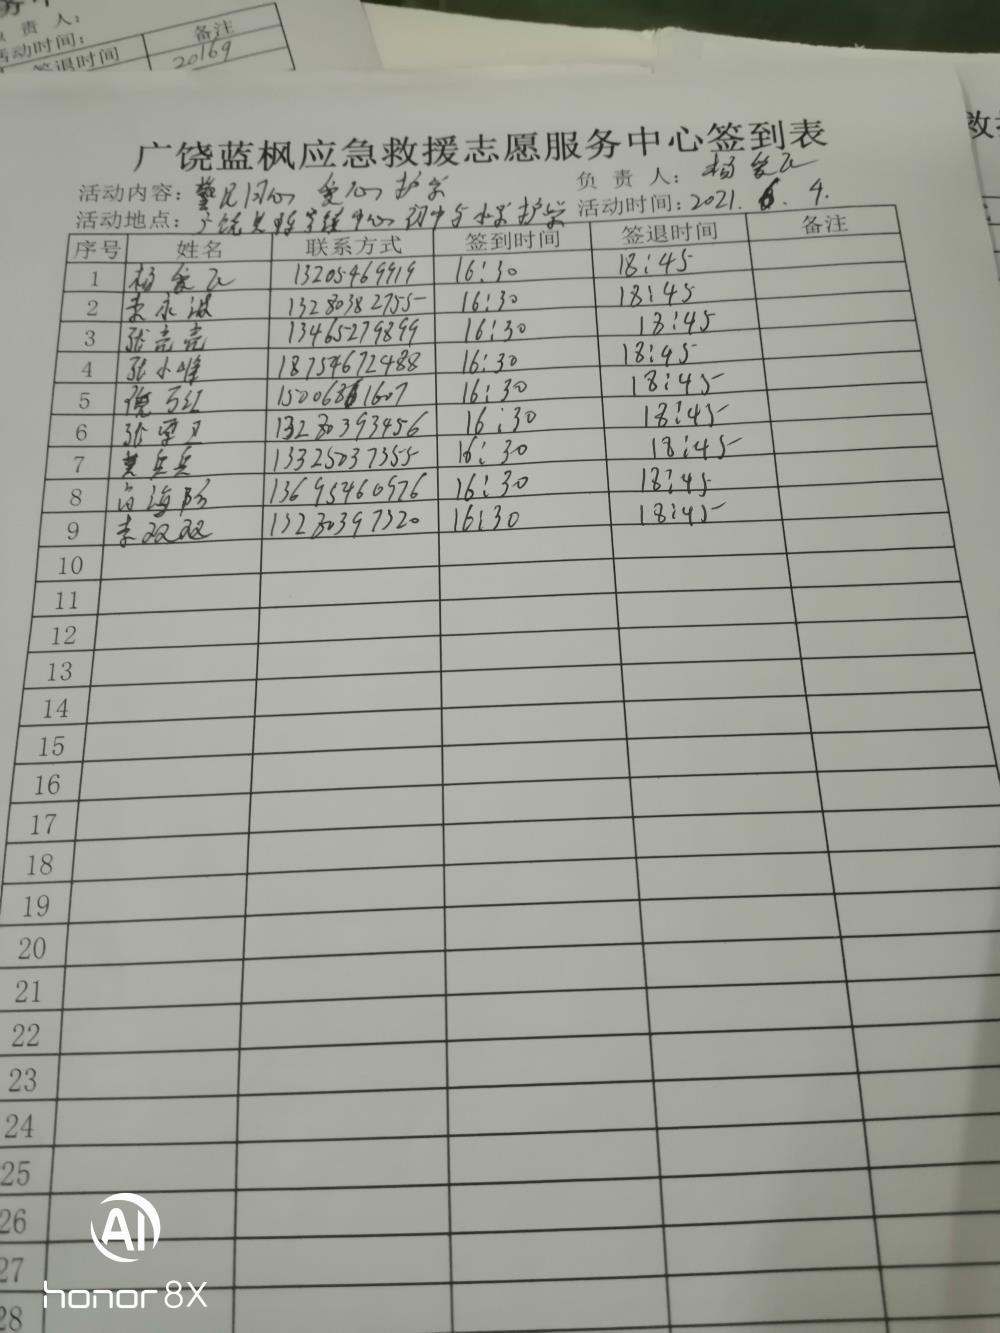 负责人:
活动时间:
签退时间 备注
20169
广饶蓝枫应急救援志愿服务中心签到表
活动内容: 警民同心 爱心护学 负责人: 杨爱民
活动地点: 广饶 中心初中与小学护学 活动时间: 2021. 6. 4.
序号 姓名 联系方式 签到时间 签退时间 备注
1 杨爱民 13205469919 16:30 18:45
2 李永波 13280382755 16:30 18:45
3 张亮亮 13465279899 16:30 18:45
4 张小唯 18754672488 16:30 18:45
5 16:30 18:45
6 张 13280393456 16:30 18:45
7 黄兵兵 13325037355 16:30 18:45
8 海 13695460976 16:30 18:45
9 李双双 13280397320 16:30 18:45
10
11
12
13
14
15
16
17
18
19
20
21
22
23
24
25
26
27
28
AI
honor 8X